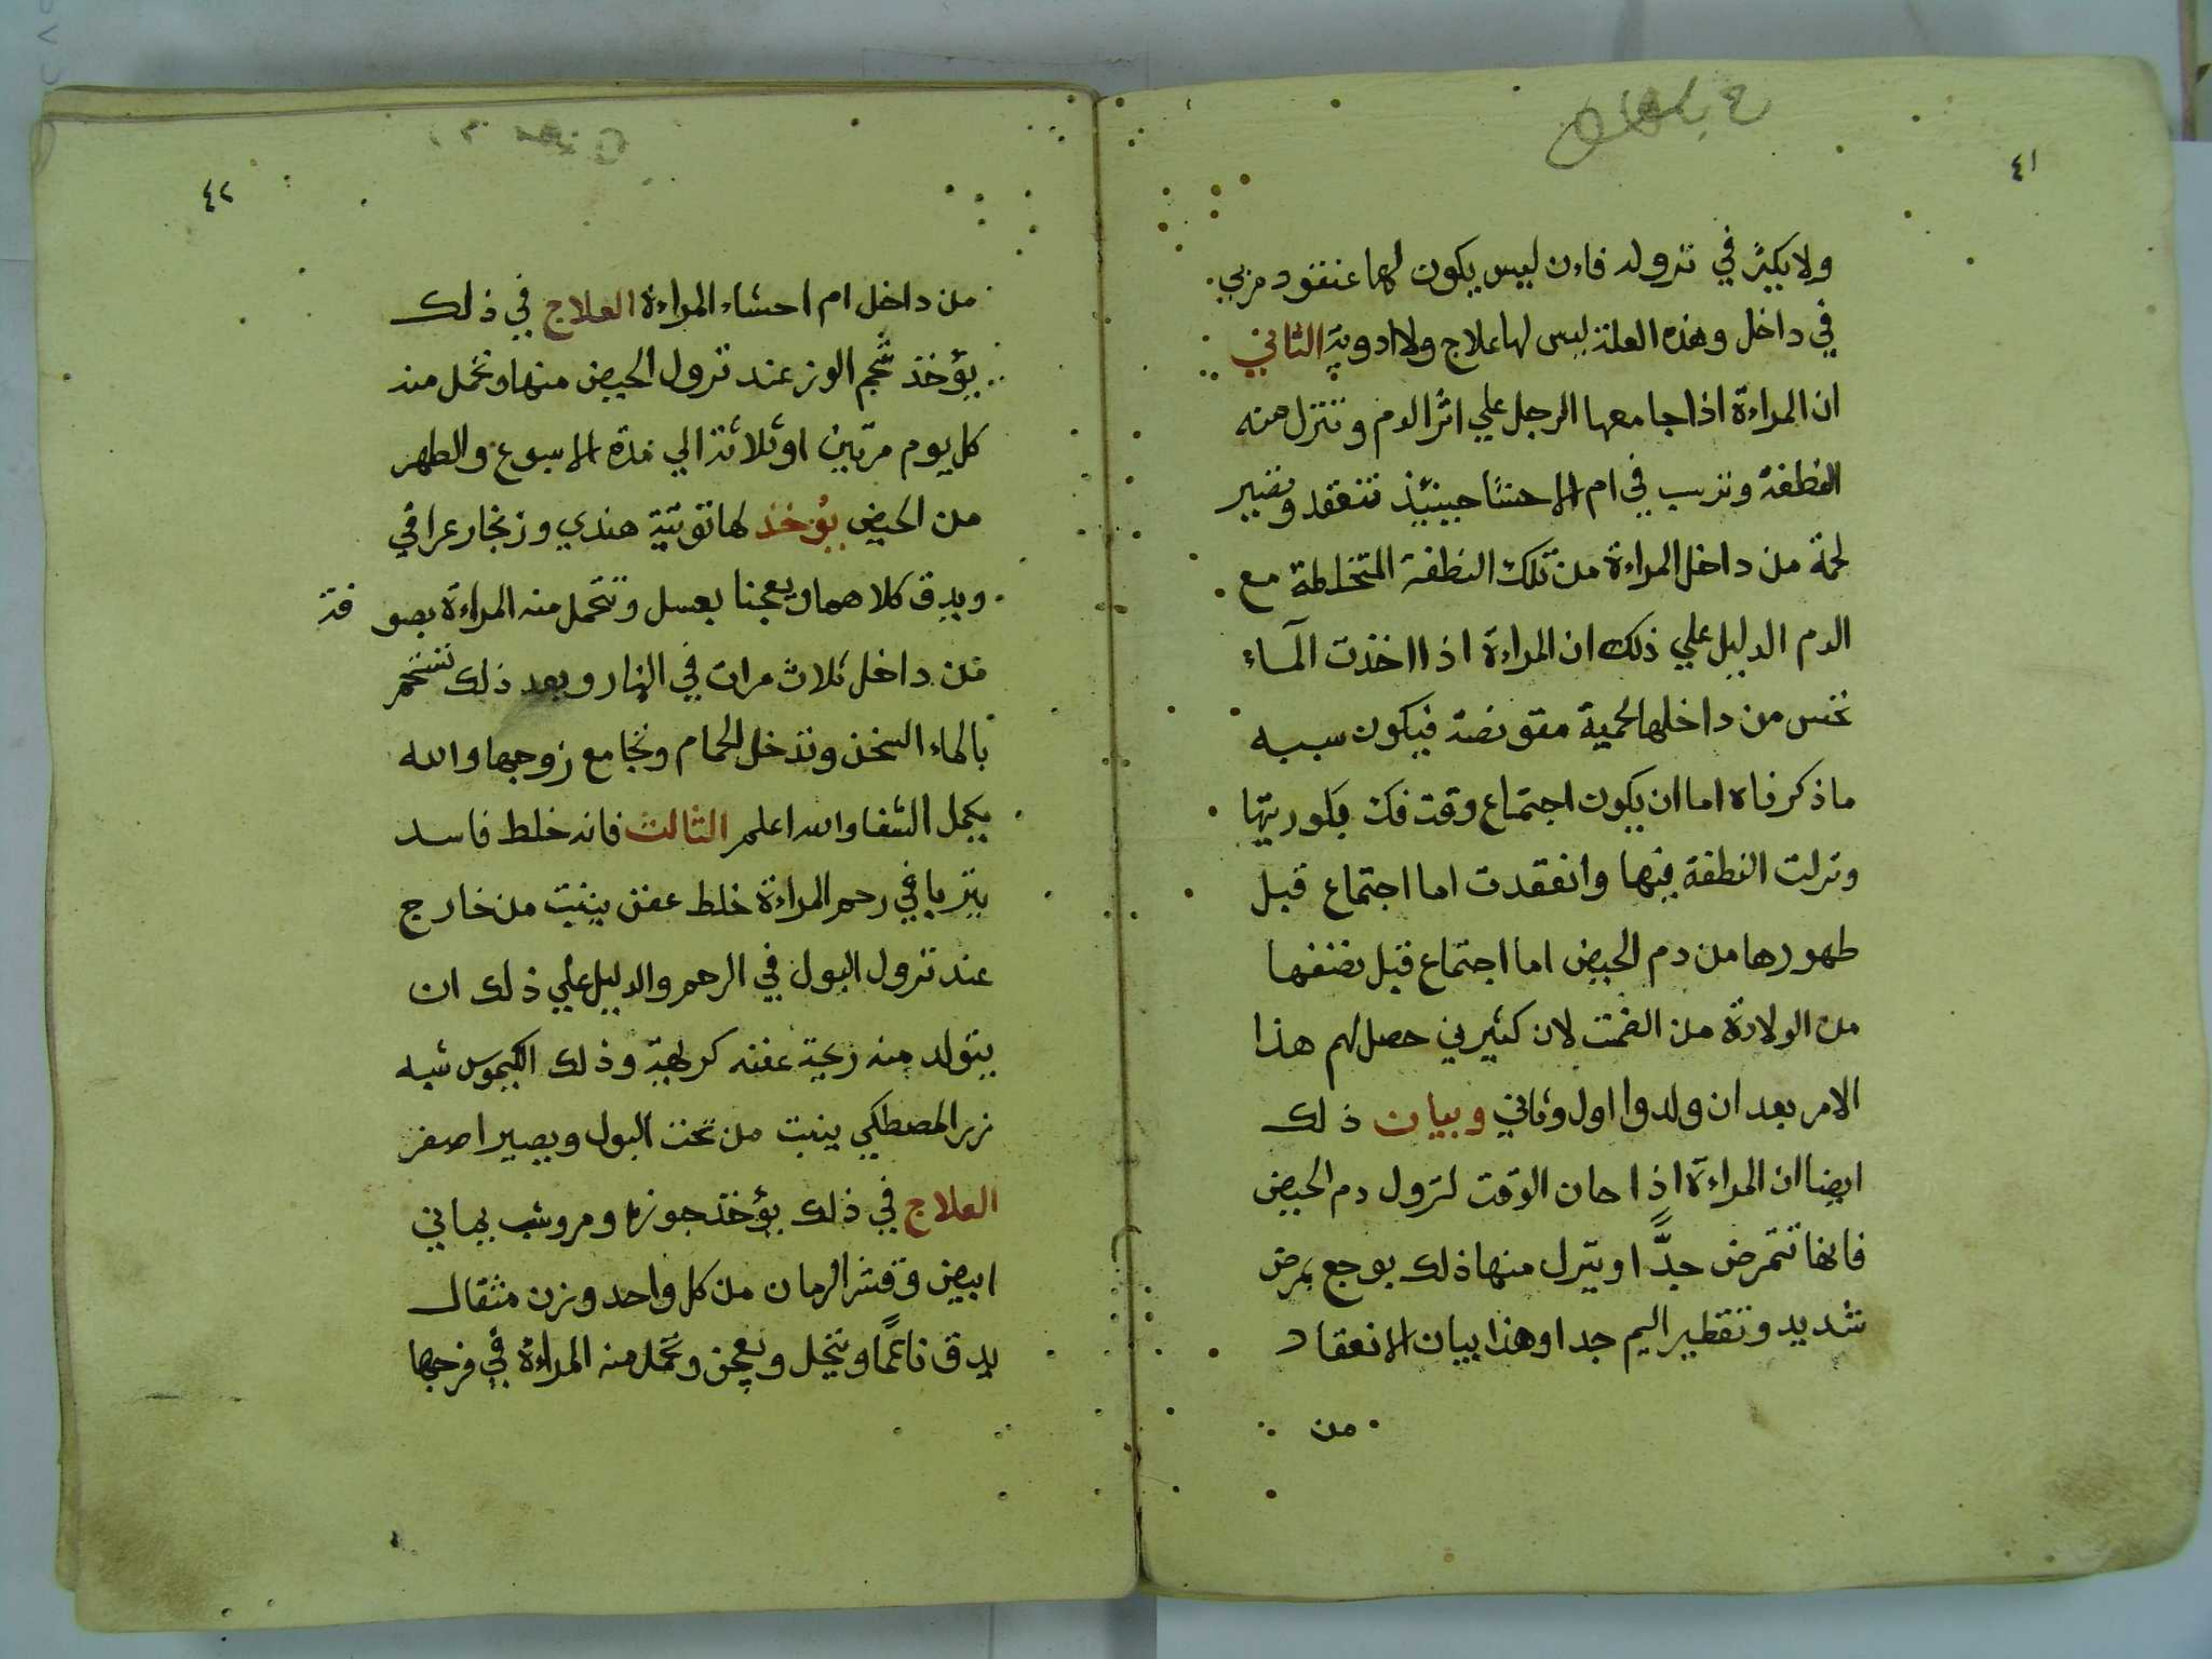 ٤١
ولا يكثر في نزوله فاءن ليس يكون لها عنقود مربي
في داخل وهذه العلة ليس لها علاج ولا ادوية الثاني
ان المراءة اذا جامعها الرجل علي اثر الدم وتنزل منه
النطفة وتريب في ام الاحشا حينيئذ تنعقد وتصير
لحمة من داخل المراءة من تلك النطفة المتخلطة مع
الدم الدليل علي ذلك ان المراءة اذا اخذت الماء
تحس من داخلها لحمية فيكون سببه
ماذكرناه اما ان يكون اجتماع وقت فك بكوريتها
ونزلت النطفة فيها وانعقدت اما اجتماع قبل
طهورها من دم الحيض اما اجتماع قبل نضفها
من الولادة من لان كثيرين حصل لهم هذا
الامر بعد ان ولدوا اول وثاني وبيان ذلك
ايضا ان المراءة اذا حان الوقت لنزول دم الحيض
فانها تتمرض جدًّا وينزل منها ذلك بوجع بمرض
شديد وتقطير اليم جدا وهذا بيان الانعقاد
من
٤٢
من داخل ام احشاء المراءة العلاج في ذلك
يؤخذ شحم الوز عند نزول الحيض منها وتحمل منه
كل يوم مرتين او ثلاثة الي مدة الاسبوع والطهر
من الحيض يؤخذ لها توتية هندي وزنجار عراقي
ويدق كلاهما ويعجنا بعسل وتتحمل منه المراءة بصوفة
من داخل ثلاث مرات في النهار وبعد ذلك تستحم
بالماء السخن وتدخل الحمام وتجامع زوجها والله
يكمل الشفا والله اعلم الثالث فانه خلط فاسد
يتربا في رحم المراءة خلط عفن ينبت من خارج
عند نزول البول في الرحم والدليل علي ذلك ان
يتولد منه ريحة عفنه كريهة وذلك الكيموس شبه
زر المصطكي ينبت من تحت البول ويصير اصفر
العلاج في ذلك يؤخذ ومروشب يماني
ابيض وقشر الرمان من كل واحد وزن مثقال
يدق ناعمًا وينخل ويعجن وتحمل منه المراءة في فرجها